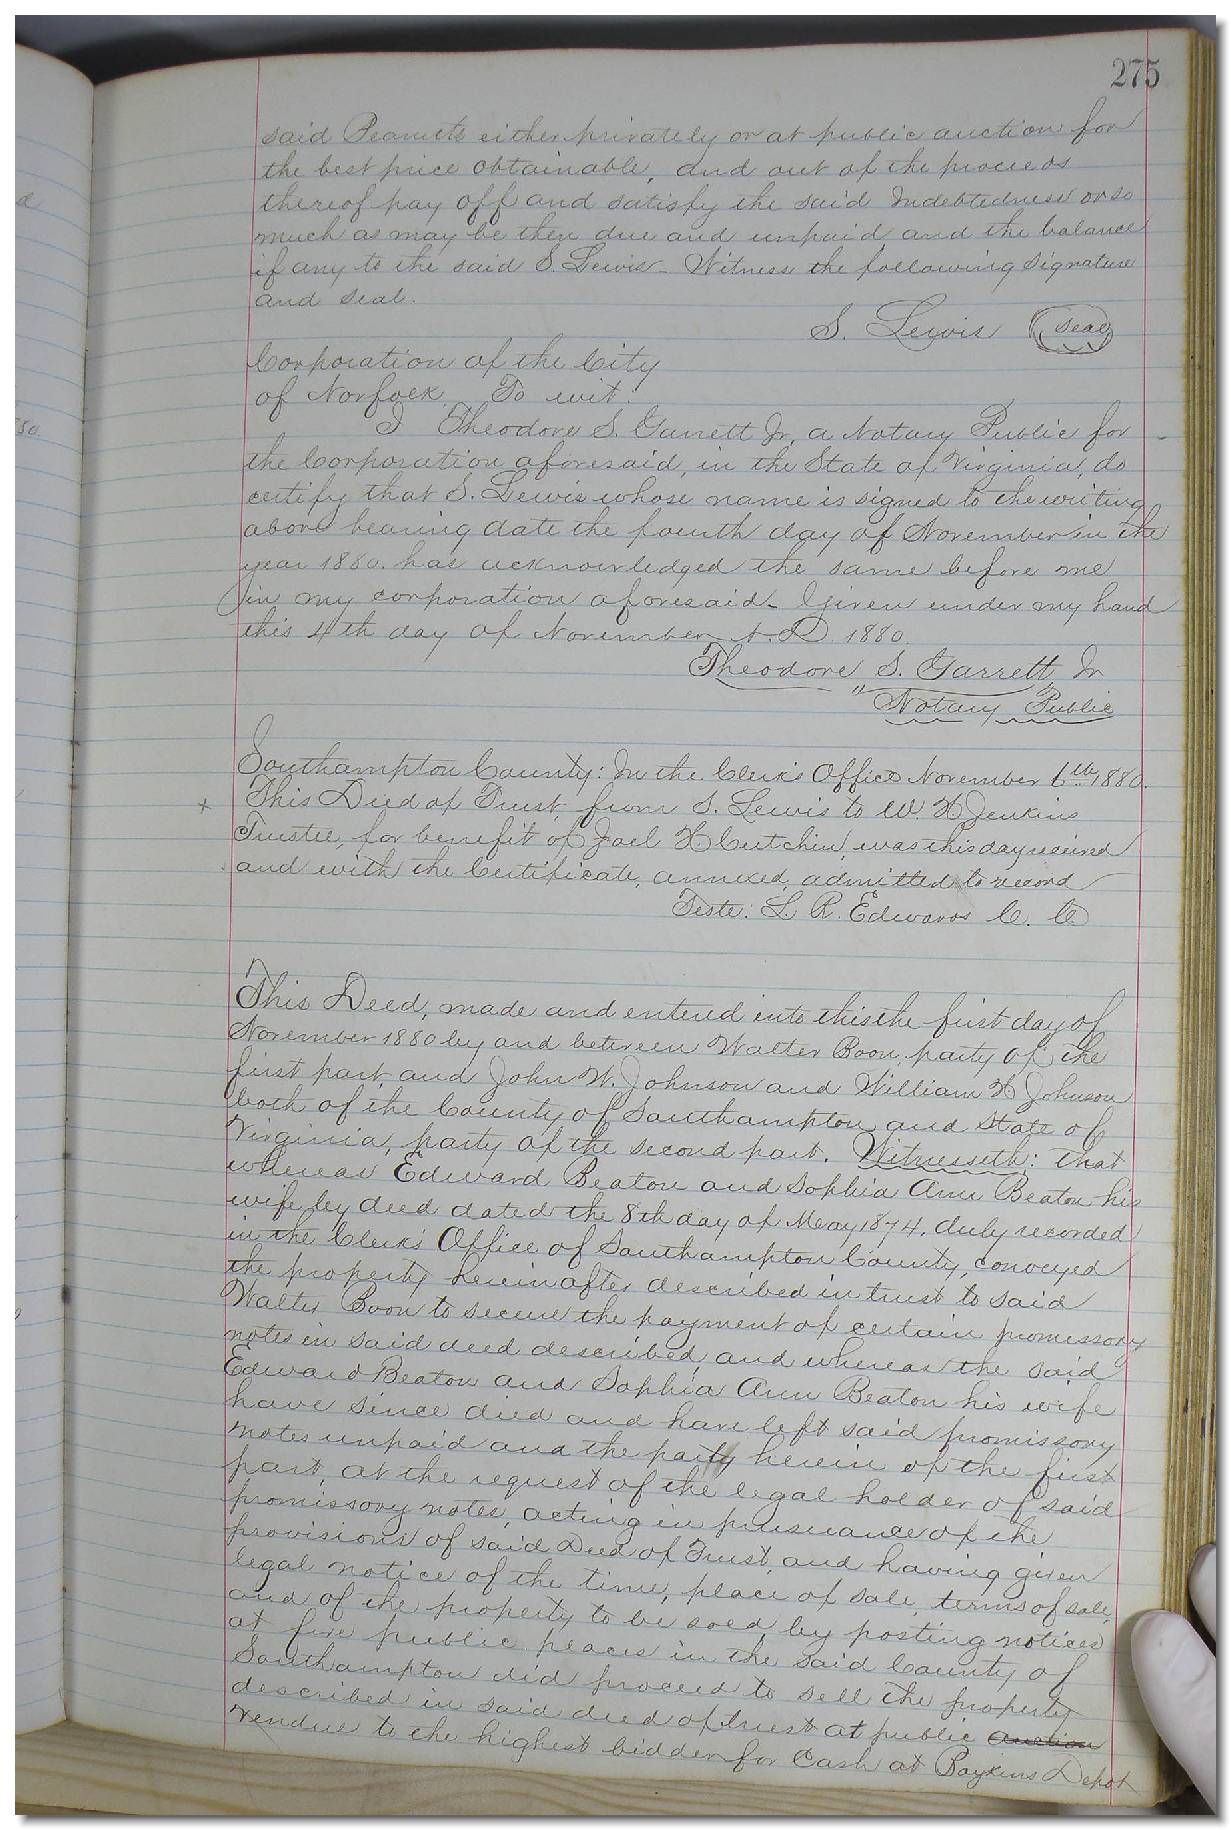 275
said Peanuts either privately or at public auction for
the best price obtainable, and out of the proceeds
thereof pay off and satisfy the said Indebtedness or so
much as may be then due and unpaid and the balance
if any to the said S. Lewis - Witness the following signature
and seal.
S. Lewis (Seal)
Corporation of the City
of Norfolk To wit:
I Theodore S. Garrett Jr, a Notary Public for
the Corporation aforesaid, in the State of Virginia, do
certify that S. Lewis whose name is signed to the writing
above bearing date the fourth day of November in the
year 1880. has acknowledged the same before me
in my corporation aforesaid - Given under my hand
this 4th day of November A.D. 1880.
Theodore S. Garrett Jr
"Notary Public"
Southampton County: In the Clerk's Office November 6th 1880.
x This Deed of Trust, from S. Lewis to W. H Jenkins
Trustee, for benefit of Joel H. Cutchin, was this day received
and with the Certificate, annexed, admitted to record
Teste: L. R. Edwards C. C.
This Deed, made and entered into this the first day of
November 1880 by and between Walter Boon, party of the
first part, and John W. Johnson and William H Johnson
both of the County of Southampton and State of
Virginia, party of the second part. Witnesseth: that
whereas Edward Beaton and Sophia Ann Beaton his
wife by deed dated the 8th day of May 1874, duly recorded
in the Clerk's Office of Southampton County, conveyed
the property hereinafter described in trust to said
Walter Boon to secure the payment of certain promissory
notes in said deed described and whereas the said
Edward Beaton and Sophia Ann Beaton his wife
have since died and have left said promissory
notes unpaid and the party herein of the first
part, at the request of the legal holder of said
promissory notes, acting in pursuance of the
provisions of said Deed of Trust, and having given
legal notice of the time, place of sale, terms of sale,
and of the property to be sold by posting notices
at five public places in the said County of
Southampton did proceed to sell the property
described in said deed of trust at public auction
vendue to the highest bidder for Cash at Boykins Depot